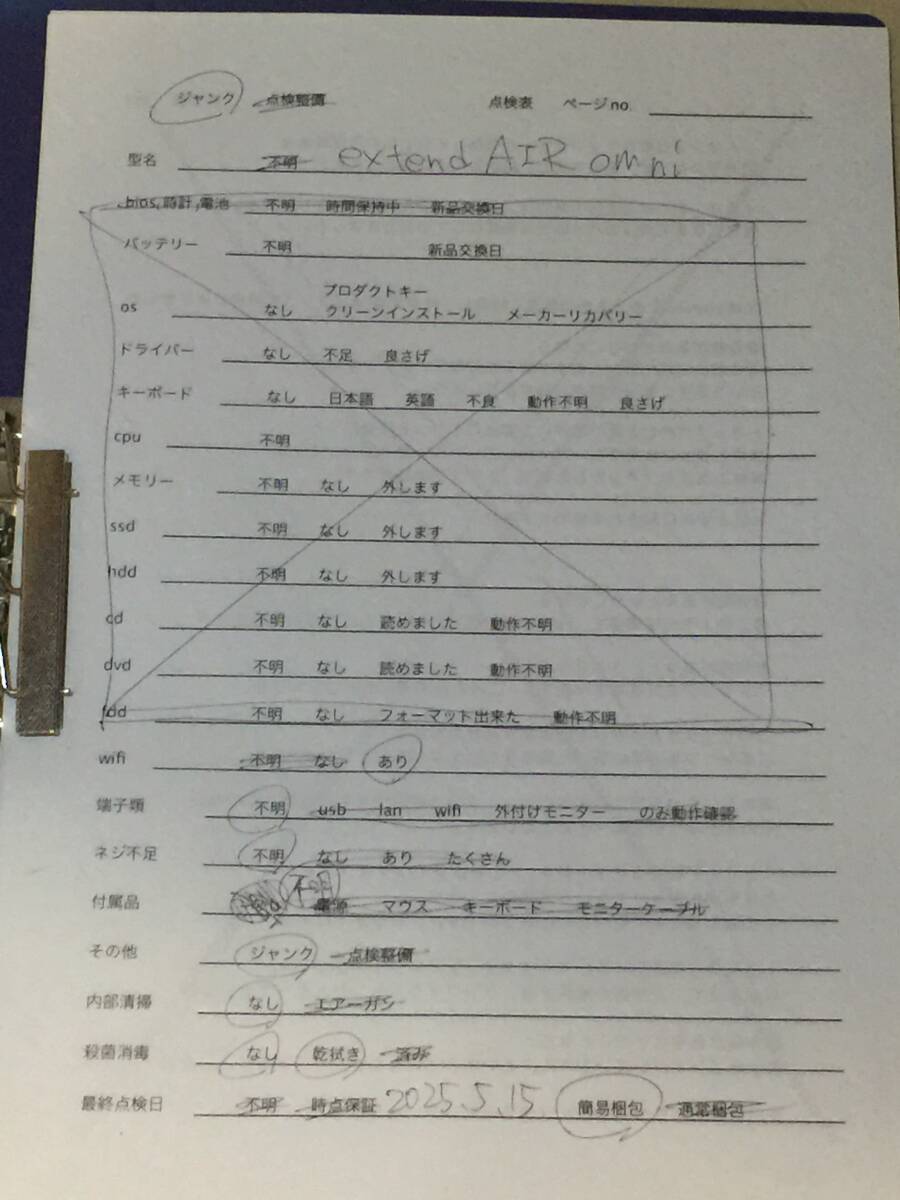 ジャンク 点検整備 点検表 ページno.
型名 不明 extend AIR omni
bios,時計,電池 不明 時間保持中 新品交換日
バッテリー 不明 新品交換日
プロダクトキー
os なし クリーンインストール メーカーリカバリー
ドライバー なし 不足 良さげ
キーボード なし 日本語 英語 不良 動作不明 良さげ
cpu 不明
メモリー 不明 なし 外します
ssd 不明 なし 外します
hdd 不明 なし 外します
cd 不明 なし 読めました 動作不明
dvd 不明 なし 読めました 動作不明
fdd 不明 なし フォーマット出来た 動作不明
wifi 不明 なし あり
端子類 不明 usb lan wifi 外付けモニター のみ動作確認
ネジ不足 不明 なし あり たくさん
不明
付属品 電源 マウス キーボード モニターケーブル
その他 ジャンク 点検整備
内部清掃 なし エアーガン
殺菌消毒 なし 乾拭き 済み
最終点検日 不明 時点保証 2025.5.15 簡易梱包 通常梱包